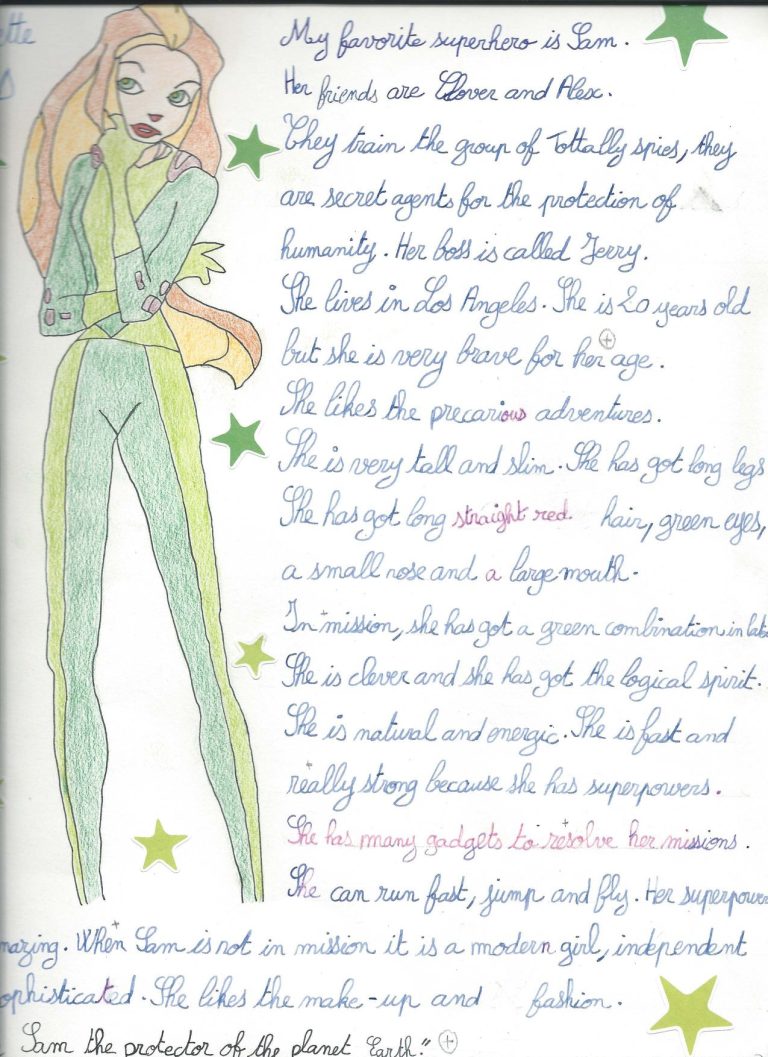 ette
My favorite superhero is Sam.
Her friends are Clover and Alex.
They train the group of Tottally spies, they
are secret agents for the protection of
humanity. Her boss is called Jerry.
She lives in Los Angeles. She is 20 years old
but she is very brave for her age.
She likes the precarious adventures.
She is very tall and slim. She has got long legs
She has got long straight red. hair, green eyes,
a small nose and a large mouth.
In mission, she has got a green combination in late
She is clever and she has got the logical spirit.
She is natural and energic. She is fast and
really strong because she has superpowers.
She has many gadgets to resolve her missions.
She can run fast, jump and fly. Her superpower
mazing. When Sam is not in mission it is a modern girl, independent
ophisticated. She likes the make-up and fashion.
Sam the protector of the planet Earth."